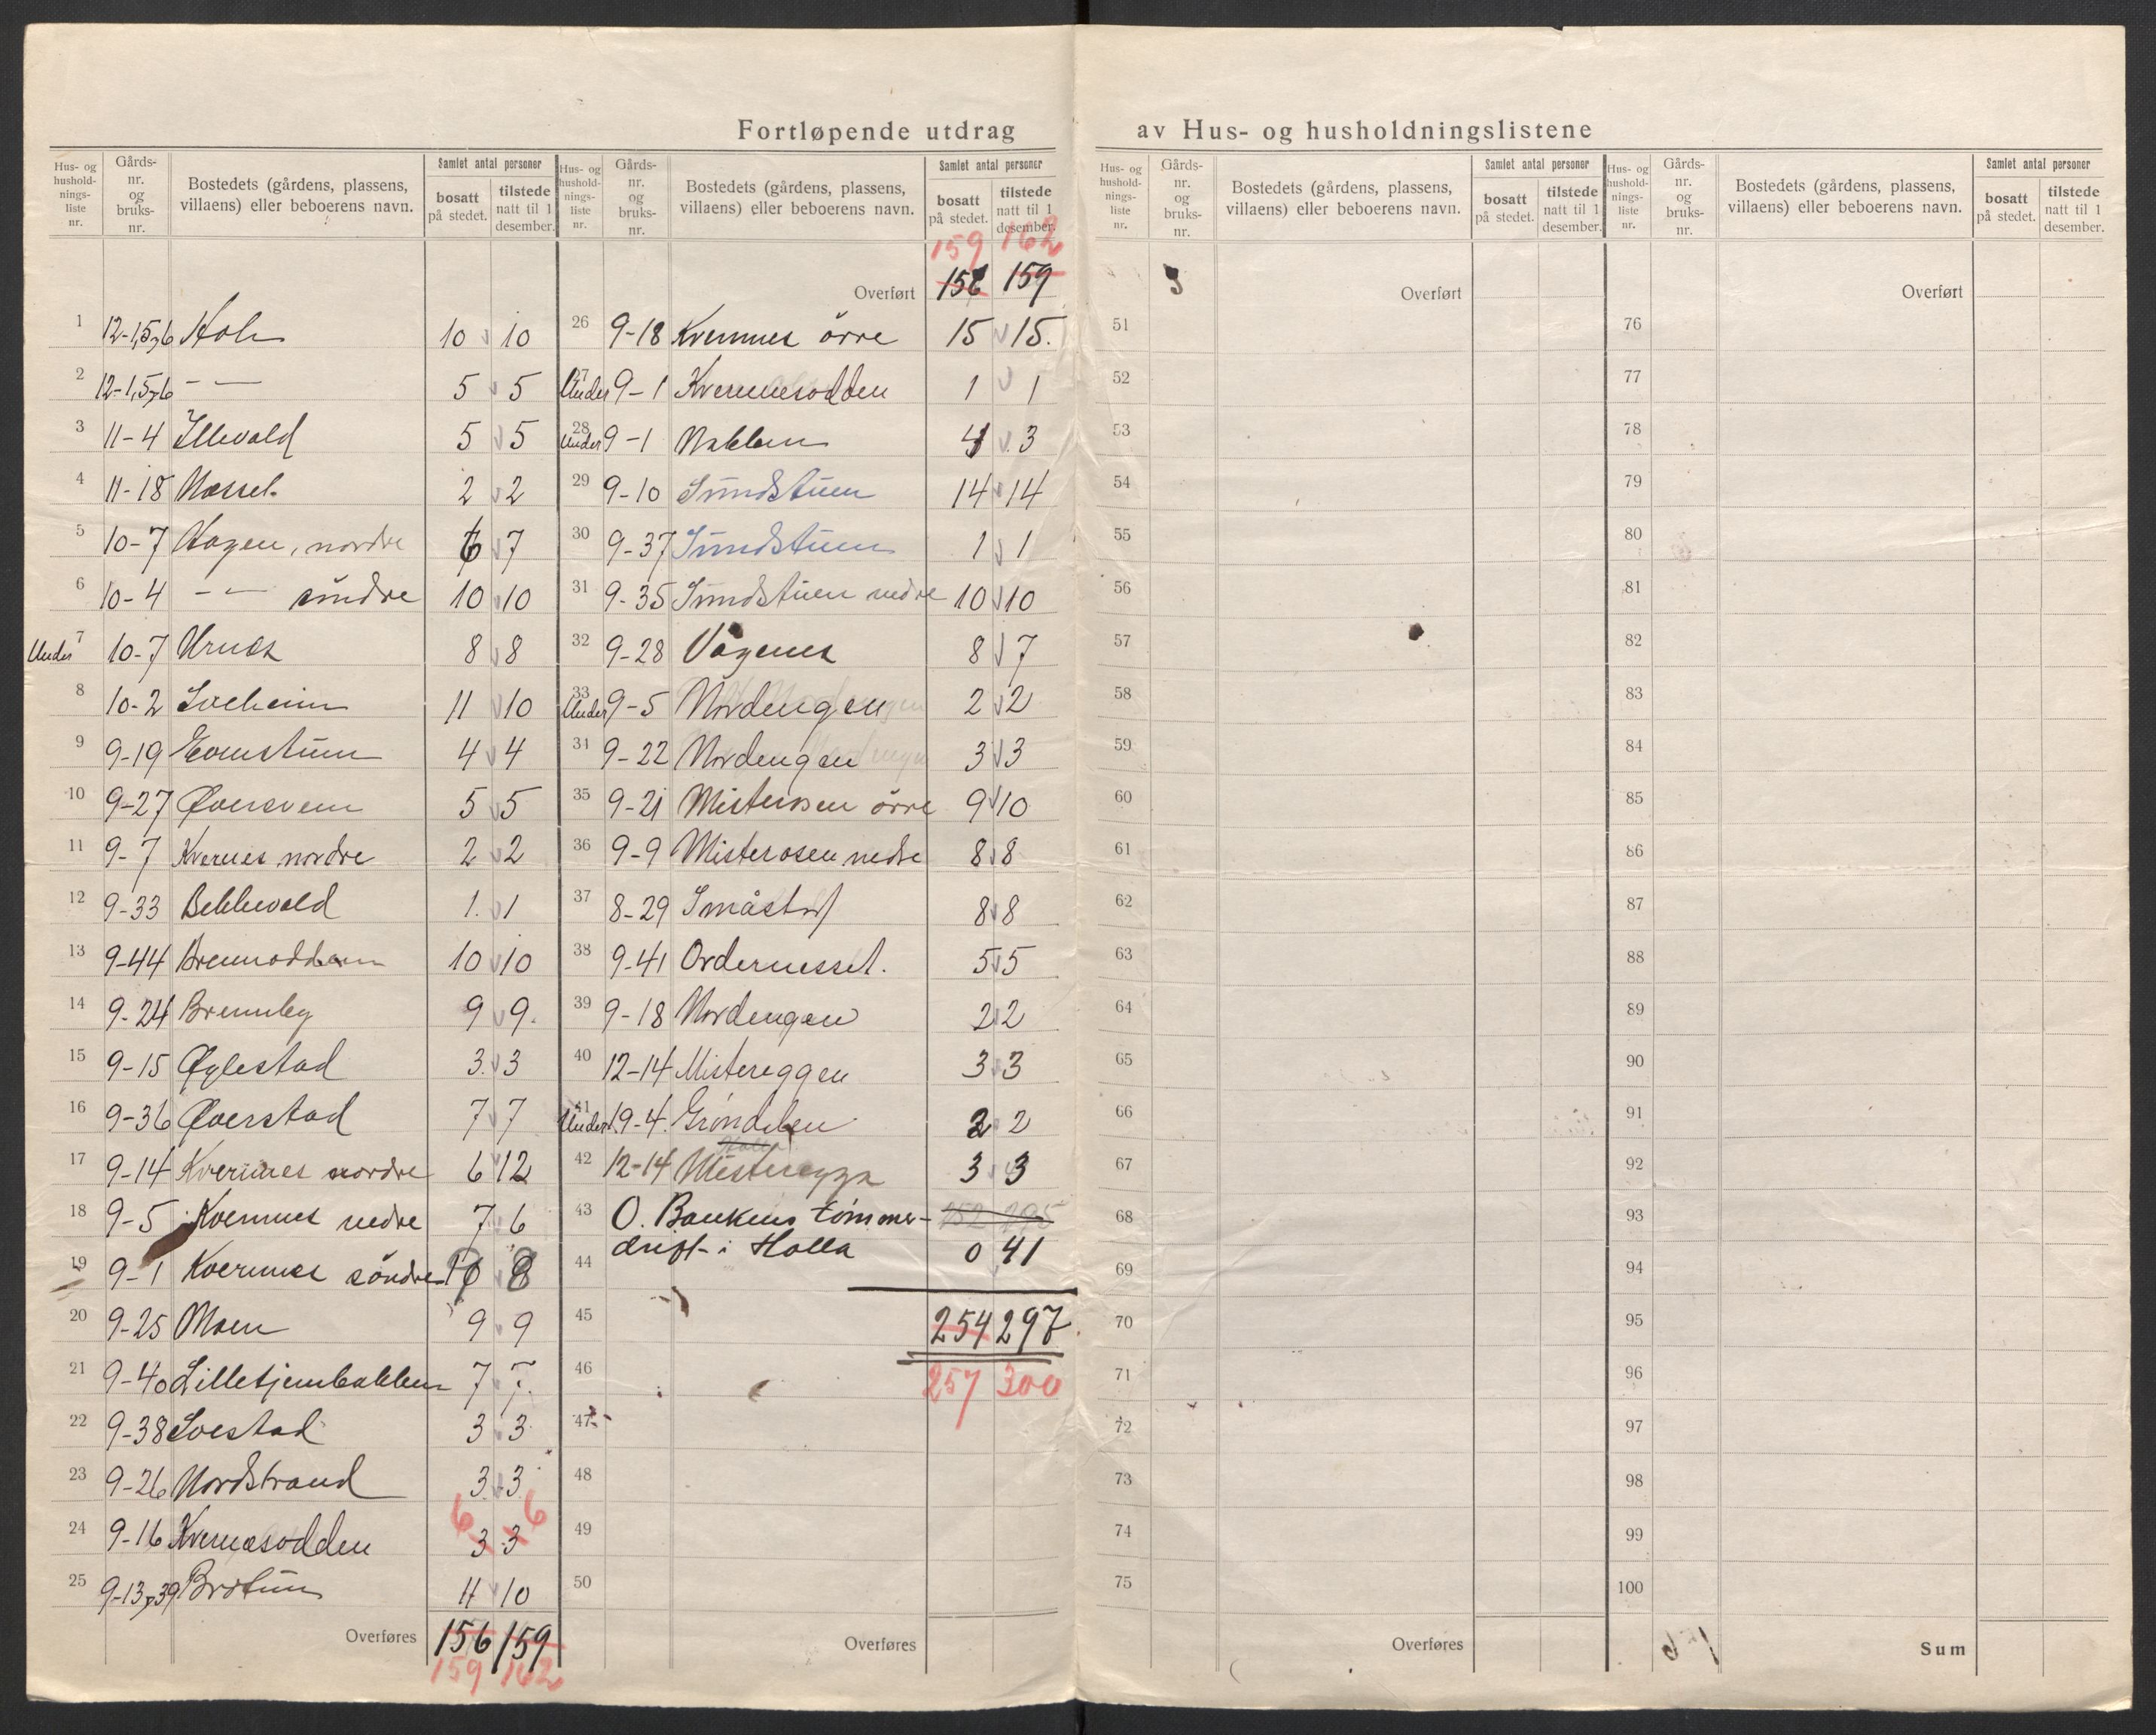 Fortløpende utdrag av Hus- og husholdningslistene
Hus- og hushold-nings-liste nr. Gårds-nr. og bruks-nr. Bostedets (gårdens, plassens, villaens) eller beboerens navn. Samlet antal personer bosatt på stedet. tilstede natt til 1 desember.
1 12-1,5,6 Hole 10 10
2 12-1,5,6 - — 5 5
3 11-4 Illevald 5 5
4 11-18 Næsset 2 2
5 10-7 Hagen, nordre 6 7
6 10-4 - — søndre 10 10
7 Under 10-7 Urnes 8 8
8 10-2 Solheim 11 10
9 9-19 Evenstuen 4 4
10 9-27 Øversveen 5 5
11 9-7 Kvernes nordre 2 2
12 9-33 Bekkevold 1 1
13 9-44 Brennodden 10 10
14 9-24 Brennby 9 9
15 9-15 Øglestad 3 3
16 9-36 Øverstad 7 7
17 9-14 Kvernnes nordre 6 12
18 9-5 Kvernnes nedre 7 6
19 9-1 Kvernnes söndre 8
20 9-25 Moen 9 9
21 9-40 Lilletjernbakken 7 7
22 9-38 Solstad 3 3
23 9-26 Nordstrand 3 3
6 6
24 9-16 Kvernesodden 3 3
25 9-13,39 Bråtun 11 10
Overføres 156 159
159 162
Hus- og hushold-nings-liste nr. Gårds-nr. og bruks-nr. Bostedets (gårdens, plassens, villaens) eller beboerens navn. Samlet antal personer bosatt på stedet. tilstede natt til 1 desember.
159 162
Overført 156 159
26 9-18 Kvernnes övre 15 15.
27 Under 9-1 Kvernnesodden 1 1
28 Under 9-1 Nabben 4 3
29 9-10 Sundstuen 14 14
30 9-37 Sundstuen 1 1
31 9-35 Sundstuen nedre 10 10
32 9-28 Vågenes 8 7
33 Under 9-5 Nordengen 2 2
34 9-22 Nordengen 3 3
35 9-21 Misterosen övre 9 10
36 9-9 Misterosen nedre 8 8
37 8-29 Småstad 8 8
38 9-41 Ordernesset. 5 5
39 9-18 Nordengen 2 2
40 12-14 Mistereggen 3 3
41 Under 19-4. Gröndalen 2 2
42 12-14 Misteregga 3 3
43 O. Bankens tömmer- 252 295
44 drift i Holla 0 41
45 254 297
46 257 300
47
48
49
50
Overføres
Hus- og hushold-nings-liste nr. Gårds-nr. og bruks-nr. Bostedets (gårdens, plassens, villaens) eller beboerens navn. Samlet antal personer bosatt på stedet. tilstede natt til 1 desember.
Overført
51
52
53
54
55
56
57
58
59
60
61
62
63
64
65
66
67
68
69
70
71
72
73
74
75
Overføres
Hus- og hushold-nings-liste nr. Gårds-nr. og bruks-nr. Bostedets (gårdens, plassens, villaens) eller beboerens navn. Samlet antal personer bosatt på stedet. tilstede natt til 1 desember.
Overført
76
77
78
79
80
81
82
83
84
85
86
87
88
89
90
91
92
93
94
95
96
97
98
99
100
Sum